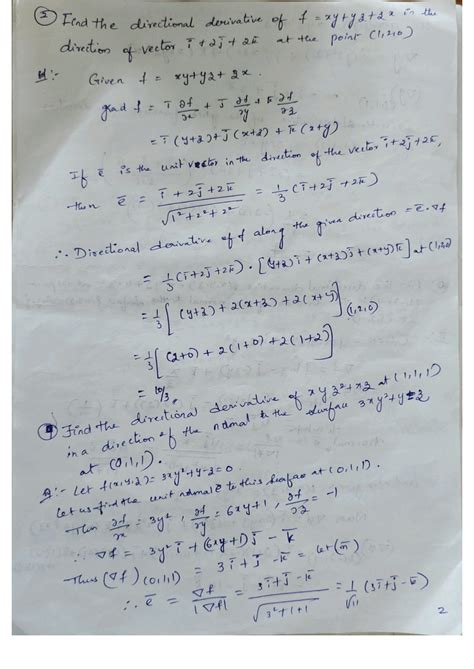 ③ Find the directional derivative of f = xy+yz+zx in the
direction of vector i̅+2j̅+2k̅ at the point (1,2,0)
Given f = xy+yz+zx.
grad f = i̅ ∂f/∂x + j̅ ∂f/∂y + k̅ ∂f/∂z
= i̅(y+z)+j̅(x+z)+k̅(x+y)
If e̅ is the unit vector in the direction of the vector i̅+2j̅+2k̅,
then e̅ = (i̅+2j̅+2k̅)/√(1²+2²+2²) = 1/3 (i̅+2j̅+2k̅)
∴ Directional derivative of f along the given direction = e̅·∇f
= 1/3 (i̅+2j̅+2k̅)·[(y+z)i̅+(x+z)j̅+(x+y)k̅] at (1,2,0)
= 1/3 [(y+z)+2(x+z)+2(x+y)](1,2,0)
= 1/3 [(2+0)+2(1+0)+2(1+2)]
= 10/3.
④ Find the directional derivative of xyz²+xz at (1,1,1)
in a direction of the normal to the surface 3xy²+y=z
at (0,1,1).
:- Let f(x,y,z)=3xy²+y-z=0.
Let us find the unit normal e̅ to this surface at (0,1,1).
Then ∂f/∂x = 3y², ∂f/∂y = 6xy+1, ∂f/∂z = -1
∴ ∇f = 3y² i̅+(6xy+1)j̅ - k̅
Thus (∇f)(0,1,1) = 3i̅+j̅-k̅ = let (n̅)
∴ e̅ = ∇f/|∇f| = (3i̅+j̅-k̅)/√(3²+1+1) = 1/√11 (3i̅+j̅-k̅)
2